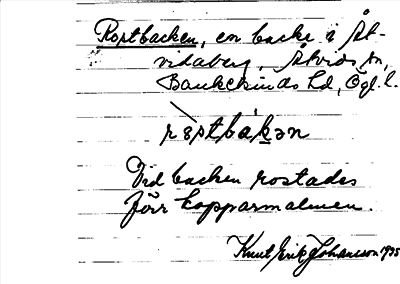 Rostbacken, en backe i Åt-
vidaberg, Åtvids sn,
Bankekinds hd, Ögl. l.
rostbákən
Vid backen rostades
förr kopparmalmen.
Knut Erik Johansson 1935